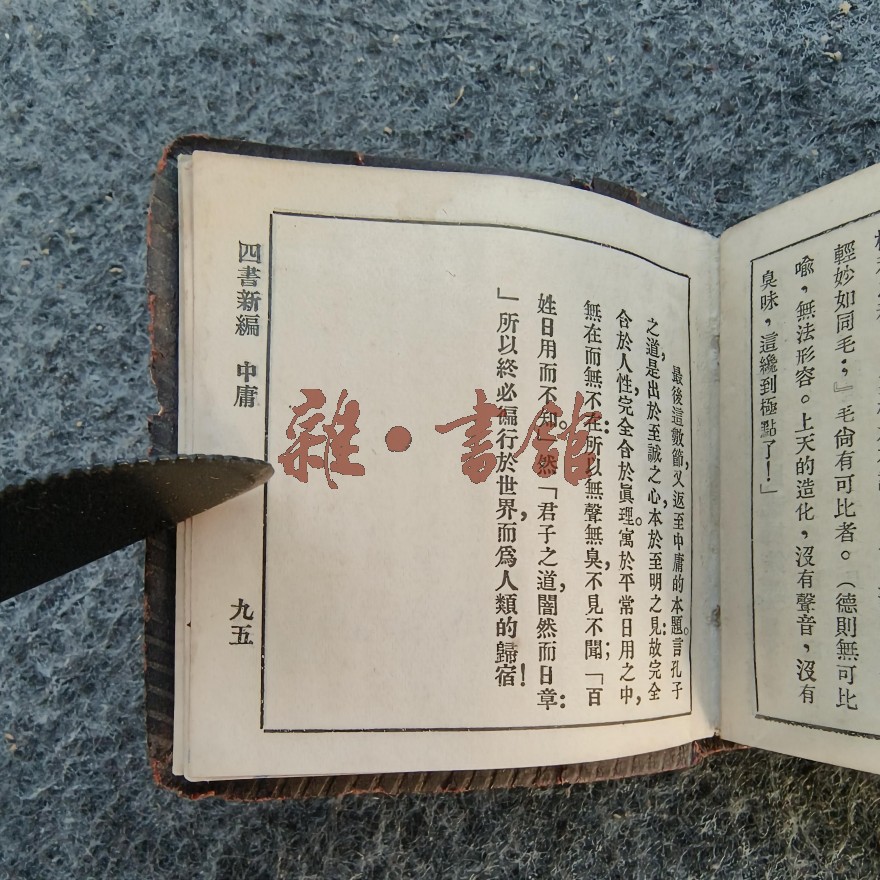 輕妙如同毛；』毛尙有可比者。（德則無可比
喻，無法形容。上天的造化，沒有聲音，沒有
臭味，這纔到極點了！」
最後這數節，又返至中庸的本題。言孔子
之道，是出於至誠之心，本於至明之見：故完全
合於人性，完全合於眞理。寓於平常日用之中，
無在而無不在：所以無聲無臭，不見不聞；「百
姓日用而不知。」然「君子之道，闇然而日章：
」所以終必偏行於世界，而爲人類的歸宿！
四書新編 中庸
九五
雜·書館